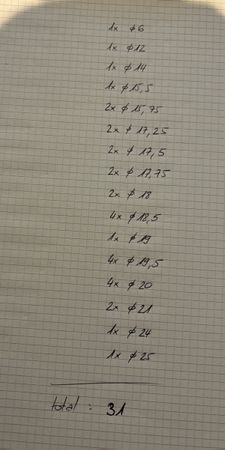 1x ϕ6
1x ϕ12
1x ϕ14
1x ϕ15,5
2x ϕ15,75
2x ϕ17,25
2x ϕ17,5
2x ϕ17,75
2x ϕ18
4x ϕ18,5
1x ϕ19
4x ϕ19,5
4x ϕ20
2x ϕ21
1x ϕ24
1x ϕ25
total : 31